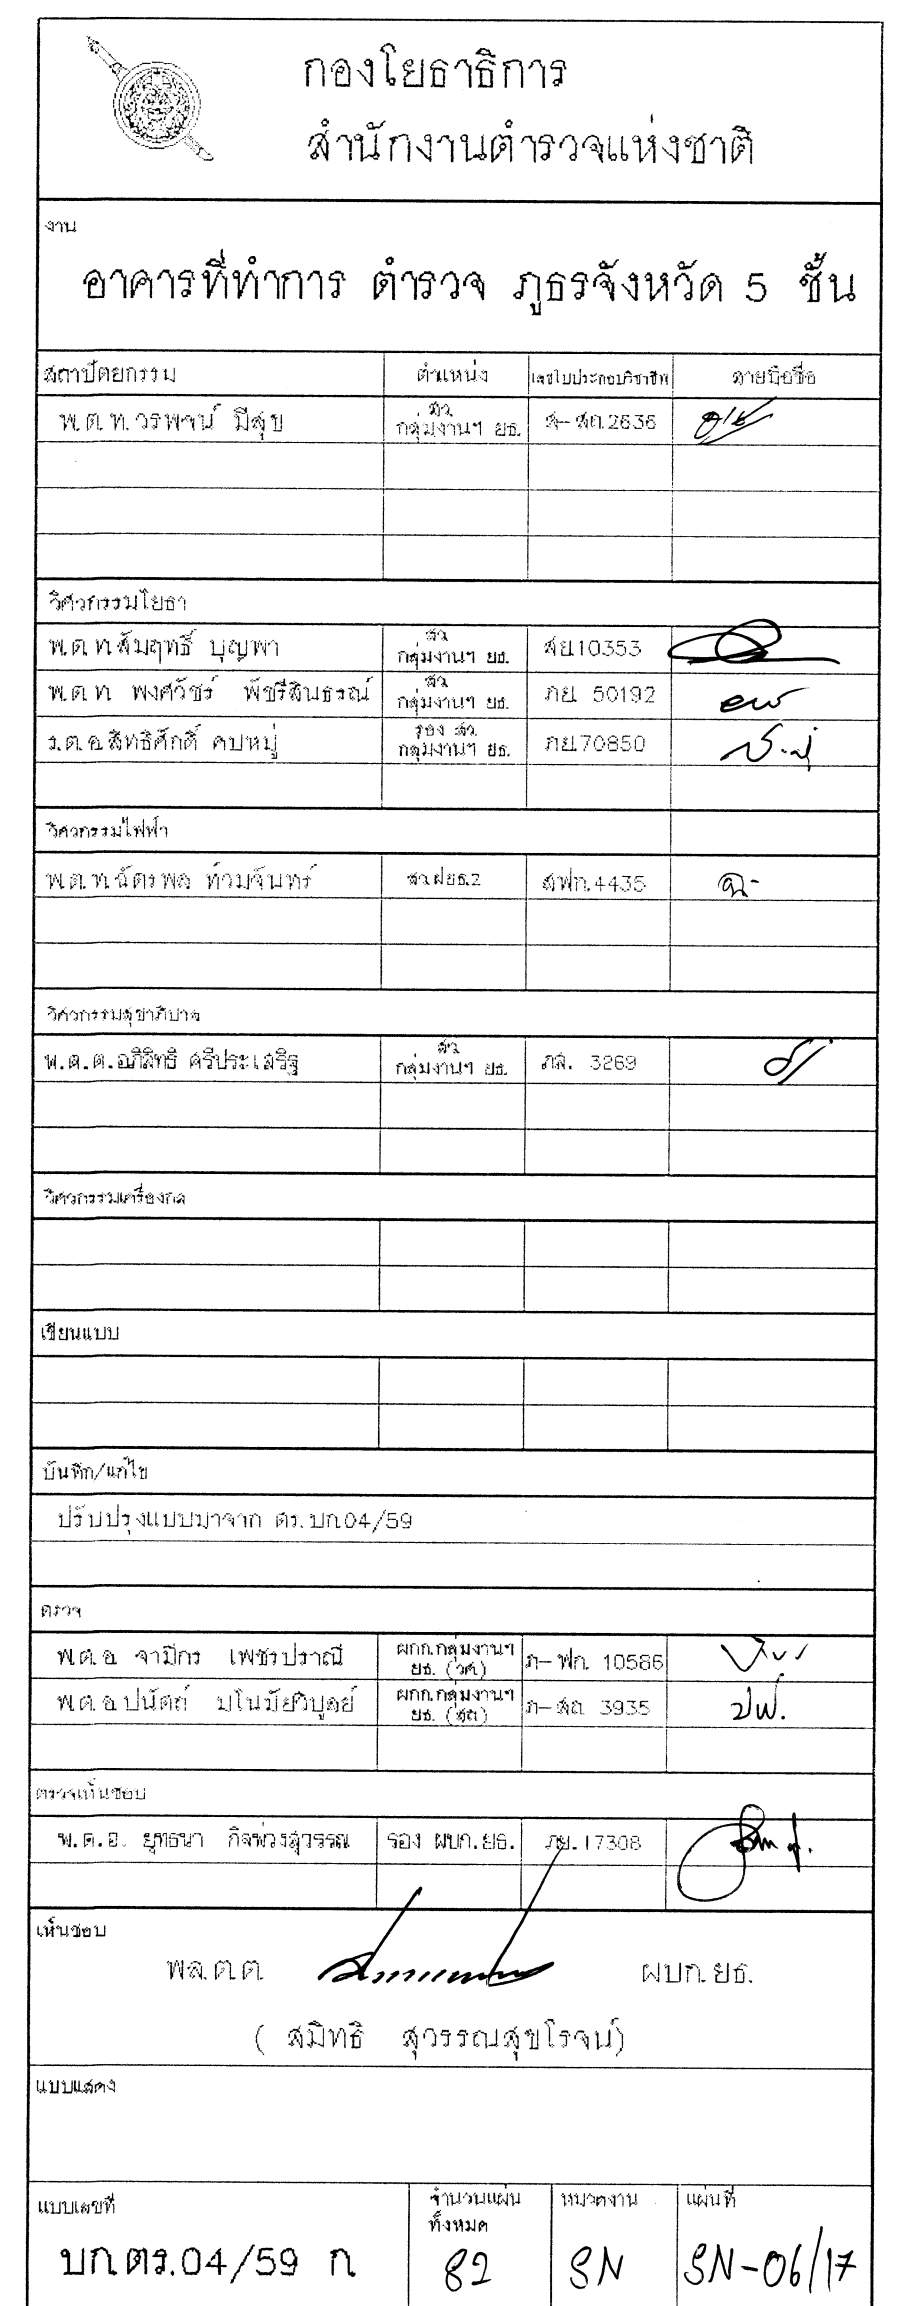 กองโยธาธิการ
สำนักงานตำรวจแห่งชาติ
งาน
อาคารที่ทำการ ตำรวจ ภูธรจังหวัด 5 ชั้น
สถาปัตยกรรม ตำแหน่ง เลขใบประกอบวิชาชีพ ลายมือชื่อ
พ.ต.ท.วรพจน์ มีสุข สว. กลุ่มงานฯ ยธ. ส-สถ.2636
วิศวกรรมโยธา
พ.ต.ท.สัมฤทธิ์ บุญพา สว. กลุ่มงานฯ ยธ. สย.10353
พ.ต.ท. พงศวัชร์ พัชรีสินธรณ์ สว. กลุ่มงานฯ ยธ. ภย. 50192
ร.ต.อ.สิทธิศักดิ์ คบหมู่ รอง สว. กลุ่มงานฯ ยธ. ภย.70850
วิศวกรรมไฟฟ้า
พ.ต.ท.ฉัตรพล ท้วมจันทร์ สว.ฝยธ.2 สฟก.4435
วิศวกรรมสุขาภิบาล
พ.ต.ต.อภิสิทธิ ศรีประเสริฐ สว. กลุ่มงานฯ ยธ. ภส. 3269
วิศวกรรมเครื่องกล
เขียนแบบ
บันทึก/แก้ไข
ปรับปรุงแบบมาจาก ตร.บก.04/59
ตรวจ
พ.ต.อ. จามิกร เพชรปราณี ผกก.กลุ่มงานฯ ยธ. (วศ.) ภ-ฟก. 10586
พ.ต.อ.ปนัตถ์ มโนมัยวิบูลย์ ผกก.กลุ่มงานฯ ยธ. (สถ) ภ-สถ. 3935
ตรวจเห็นชอบ
พ.ต.อ. ยุทธนา กิจพ่วงสุวรรณ รอง ผบก.ยธ. ภย.17308
เห็นชอบ
พล.ต.ต. ผบก.ยธ.
( สมิทธิ สุวรรณสุขโรจน์)
แบบแสดง
แบบเลขที่ จำนวนแผ่น ทั้งหมด หมวดงาน แผ่นที่
บก.ตร.04/59 ก 82 SN SN-06/17